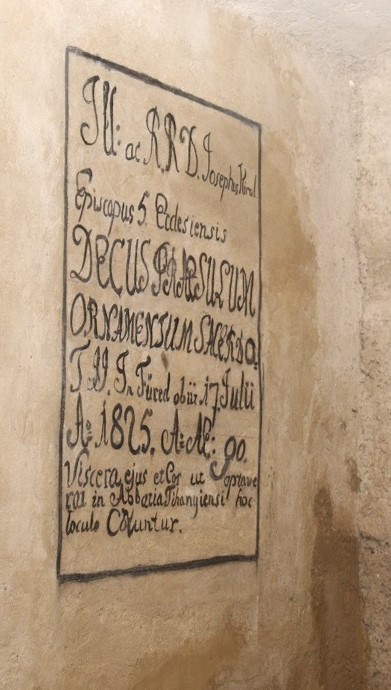 Ill: ac. R.R.D. Josephus
Episcopus 5. Ecclesiensis
DECUS PRÆSULUM
ORNAMENTUM SACERDO
TII. In Füred obiit 17 Julii
A: 1825. A: Æ: 90.
Viscera ejus et Cor ut optave
rat in Abbatia Tihanyiensi hoc
loculo Coluntur.